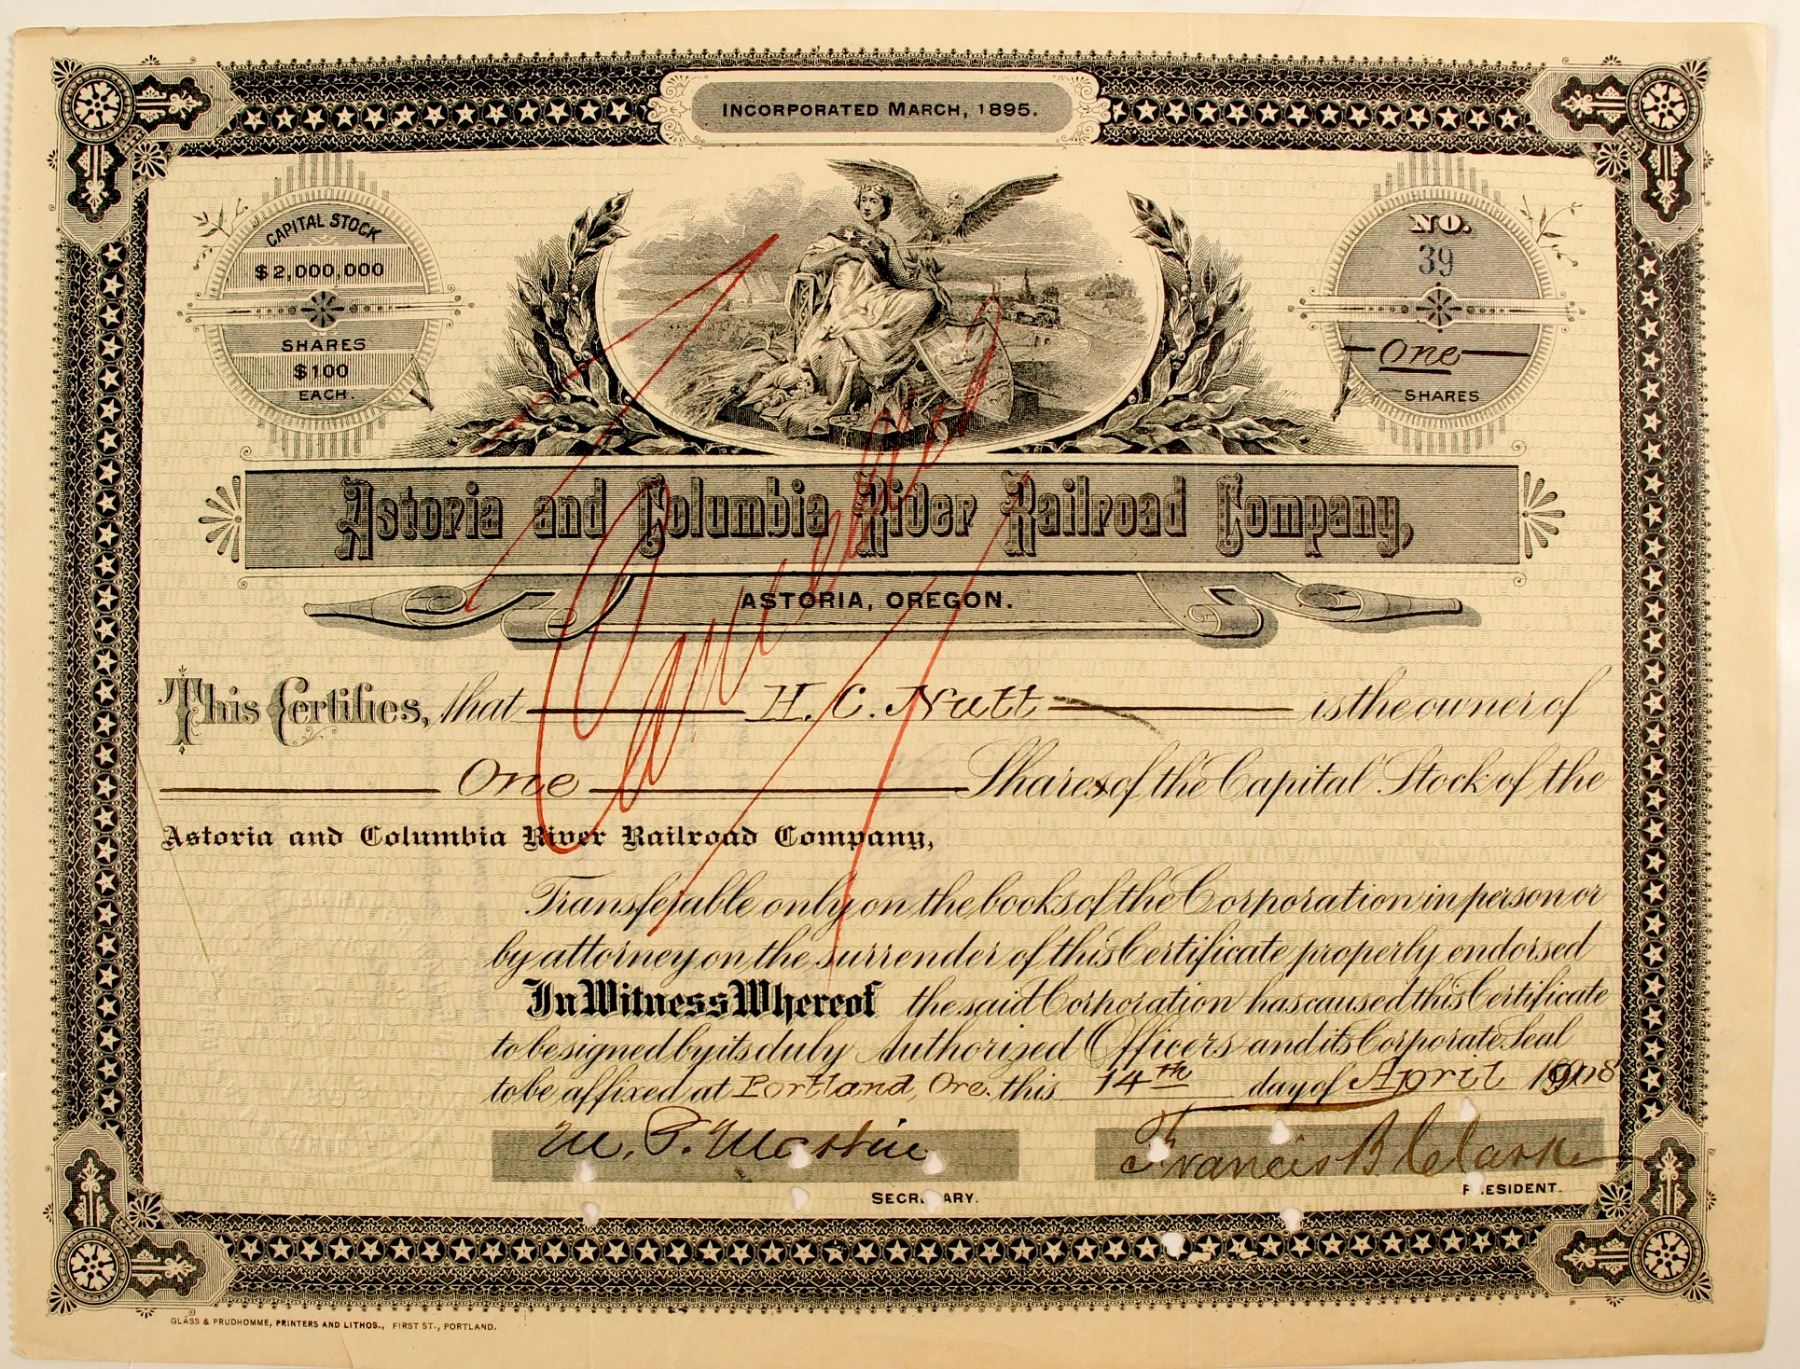 INCORPORATED MARCH, 1895.
CAPITAL STOCK
$2,000,000
SHARES
$100
EACH.
NO.
39
One
SHARES
Astoria and Columbia River Railroad Company,
ASTORIA, OREGON.
Cancelled
This Certifies, that H. C. Nutt is the owner of
One Shares of the Capital Stock of the
Astoria and Columbia River Railroad Company,
Transferable only on the books of the Corporation in person or
by attorney on the surrender of this Certificate properly endorsed
In Witness Whereof the said Corporation has caused this Certificate
to be signed by its duly Authorized Officers and its Corporate Seal
to be affixed at Portland, Ore. this 14th day of April 1908
Francis B Clarke
SECRETARY.
PRESIDENT.
GLASS & PRUDHOMME, PRINTERS AND LITHOS., FIRST ST., PORTLAND.